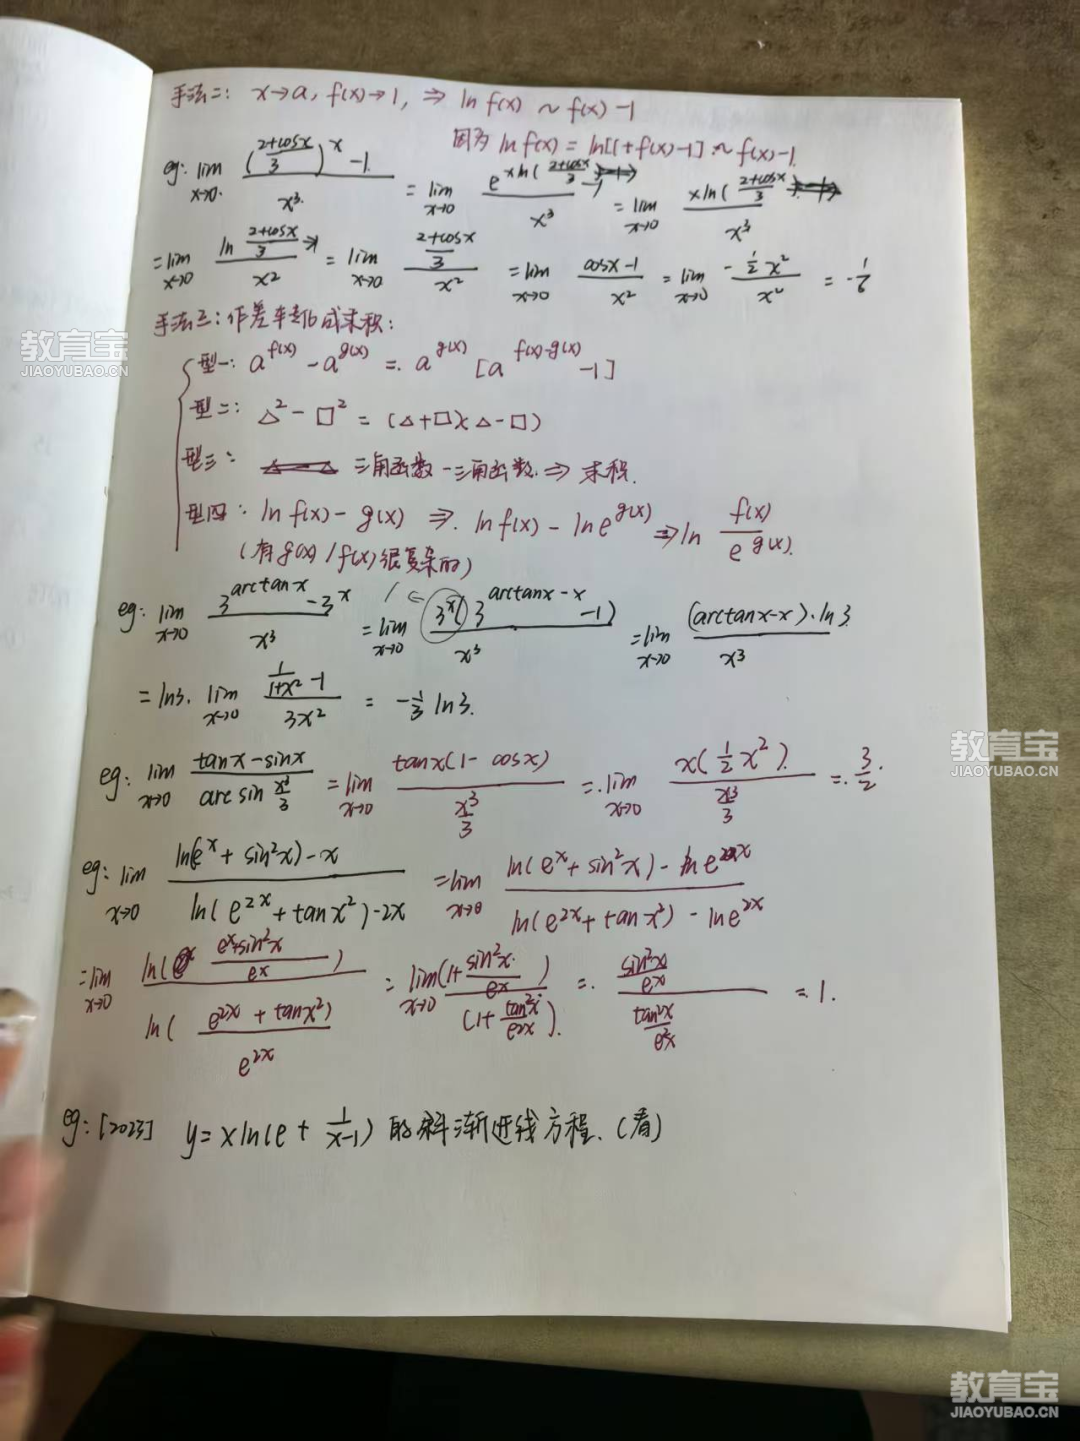 手法二: x→a, f(x)→1, ⇒ ln f(x) ~ f(x)-1
因为 ln f(x) = ln[1+f(x)-1] ~ f(x)-1.
eg: lim x→0 ((2+cosx)/3)^x -1 / x³ = lim x→0 e^{x ln((2+cosx)/3)} -1 / x³ = lim x→0 x ln((2+cosx)/3) / x³
= lim x→0 ln (2+cosx)/3 / x² = lim x→0 (2+cosx)/3 / x² = lim x→0 cosx-1 / x² = lim x→0 -½x² / x² = -1/6
手法三: 作差转化成乘积:
型一: a^{f(x)} - a^{g(x)} = a^{g(x)} [a^{f(x)-g(x)} -1]
型二: △² - □² = (△+□)(△-□)
型三: 三角函数-三角函数 ⇒ 乘积.
型四: ln f(x) - g(x) ⇒ ln f(x) - ln e^{g(x)} ⇒ ln f(x)/e^{g(x)}.
(有g(x)/f(x)很复杂的)
eg: lim x→0 3^{arctanx} - 3^x / x³ = lim x→0 3^x(3^{arctanx-x} -1) / x³ = lim x→0 (arctanx-x)·ln3 / x³
= ln3. lim x→0 1/(1+x²) -1 / 3x² = -⅓ ln3.
eg: lim x→0 tanx-sinx / arcsin x³/3 = lim x→0 tanx(1-cosx) / x³/3 = lim x→0 x(½x²) / x³/3 = 3/2.
eg: lim x→0 ln(e^x+sin²x)-x / ln(e^{2x}+tanx²)-2x = lim x→0 ln(e^x+sin²x)-ln e^x / ln(e^{2x}+tanx²)-ln e^{2x}
= lim x→0 ln( e^x+sin²x / e^x ) / ln( e^{2x}+tanx² / e^{2x} ) = lim x→0 (1+ sin²x/e^x ) / (1+ tan²x/e^{2x} ). = sin²x/e^x / tan²x/e^{2x} = 1.
eg: [2023] y=x ln(e+ 1/(x-1)) 的斜渐近线方程. (看)
教育宝
JIAOYUBAO.CN
教育宝
JIAOYUBAO.CN
教育宝
JIAOYUBAO.CN
教育宝
JIAOYUBAO.CN